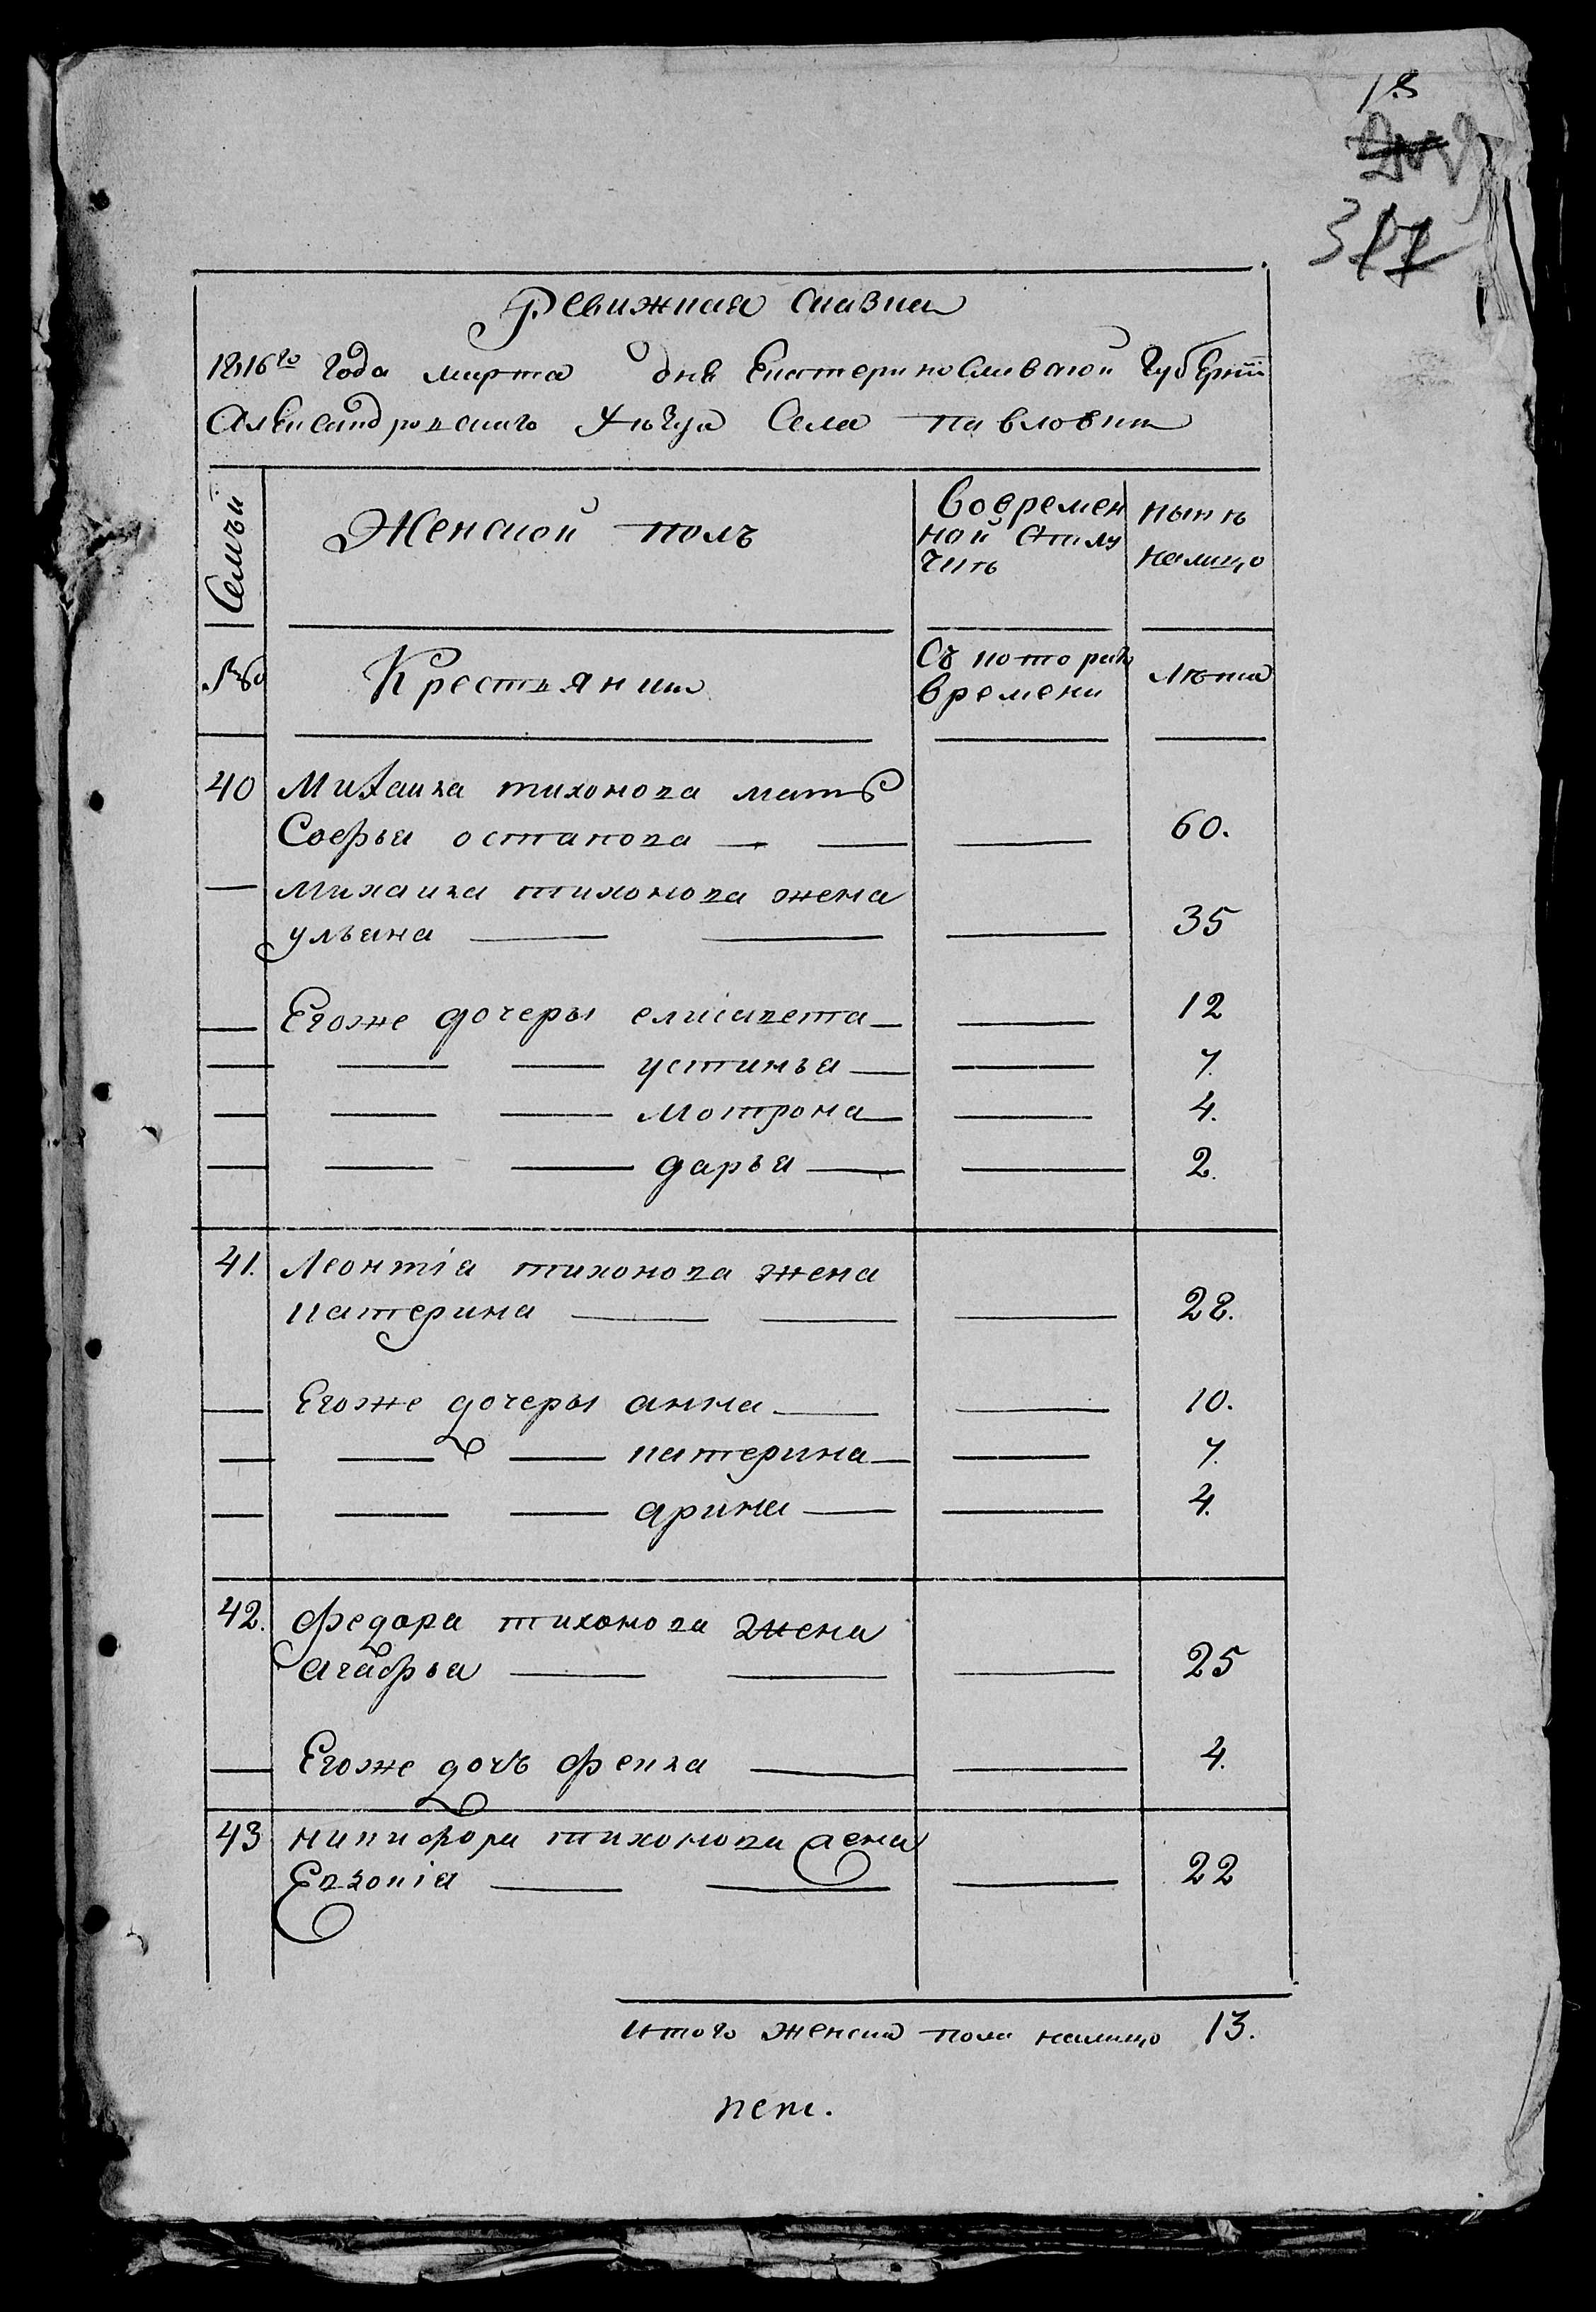 18
317
Ревижная сказка
1816го года марта дня Екатеринославской Губернии
Александровского уезда Села Павловки
Семьи
Женской полъ
Вовремен
ной Отлу
чкѣ
нынѣ
налицо
№
Крестьянки
Съ котораго
времени
Лѣта
40 Михаила тихонова мать
Софья остапова 60.
Михаила тихонова жена
ульяна 35
Егоже дочеры елисавета 12
устинья 7.
мотрона 4.
дарья 2.
41. Леонтiя тихонова жена
катерина 28.
Егоже дочеры анна 10.
катерина 7.
арина 4.
42. Федора тихонова жена
агафья 25
Егоже дочь фекла 4.
43 никифора тихонова жена
Евдокiя 22
Итого женска пола налицо 13.